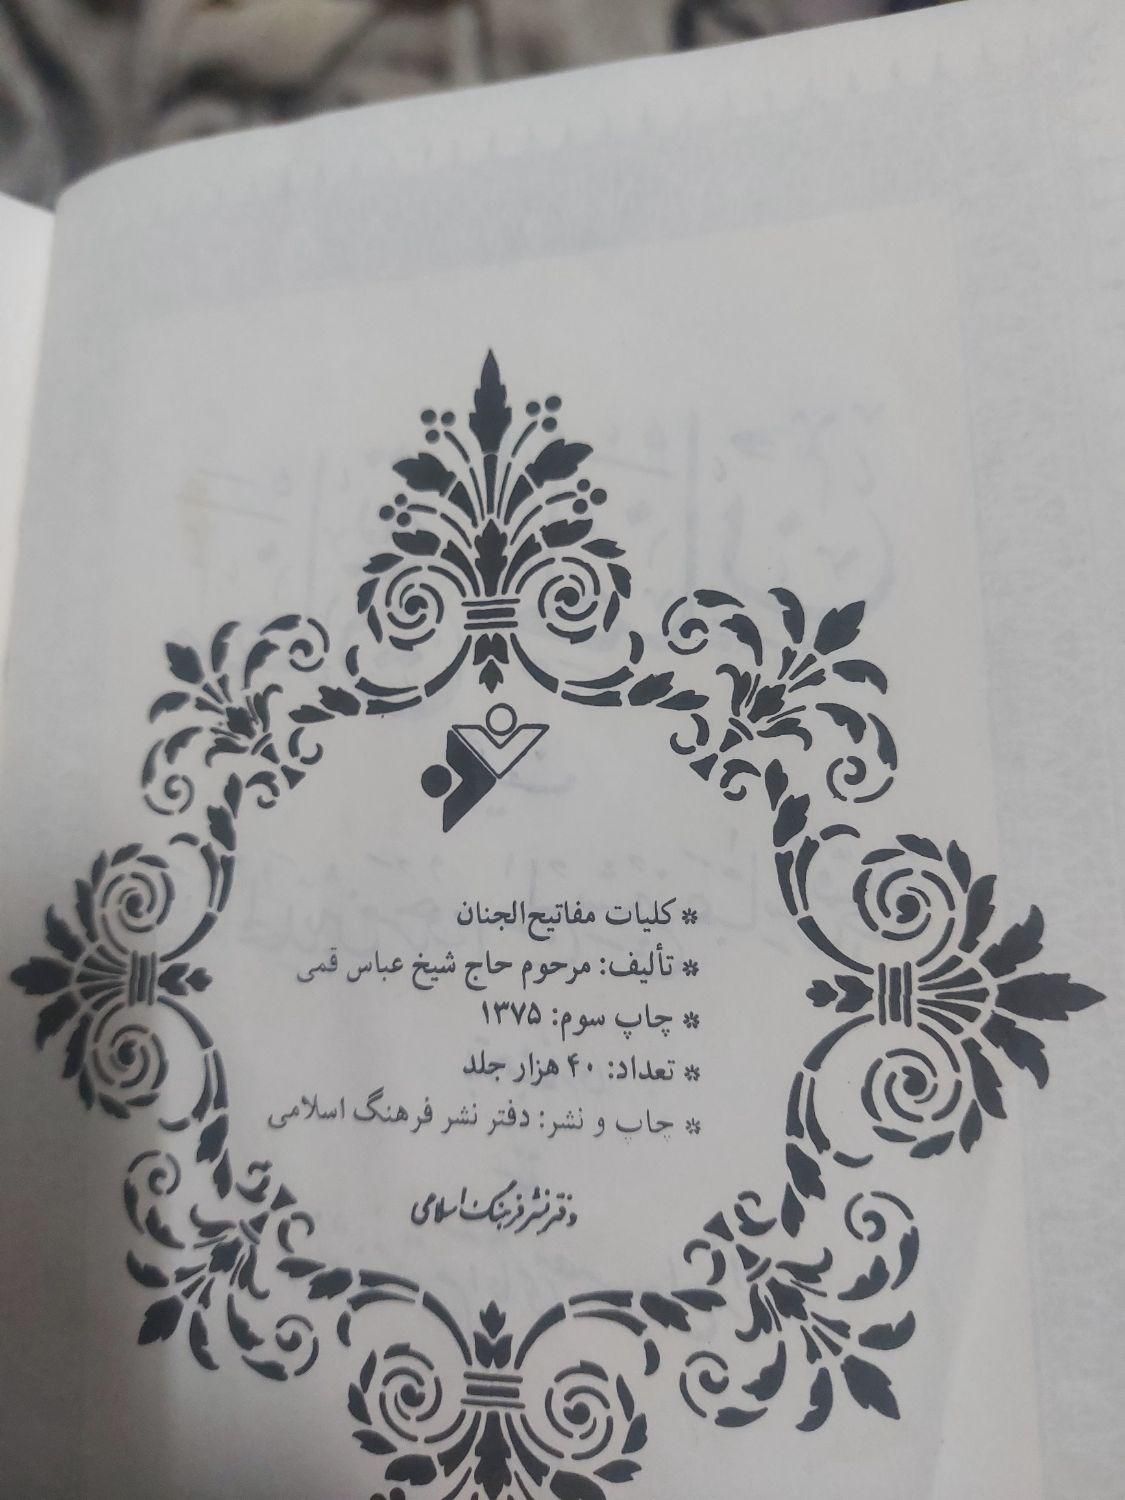 * کلیات مفاتیح‌الجنان
* تألیف: مرحوم حاج شیخ عباس قمی
* چاپ سوم: ۱۳۷۵
* تعداد: ۴۰ هزار جلد
* چاپ و نشر: دفتر نشر فرهنگ اسلامی
دفتر نشر فرهنگ اسلامی